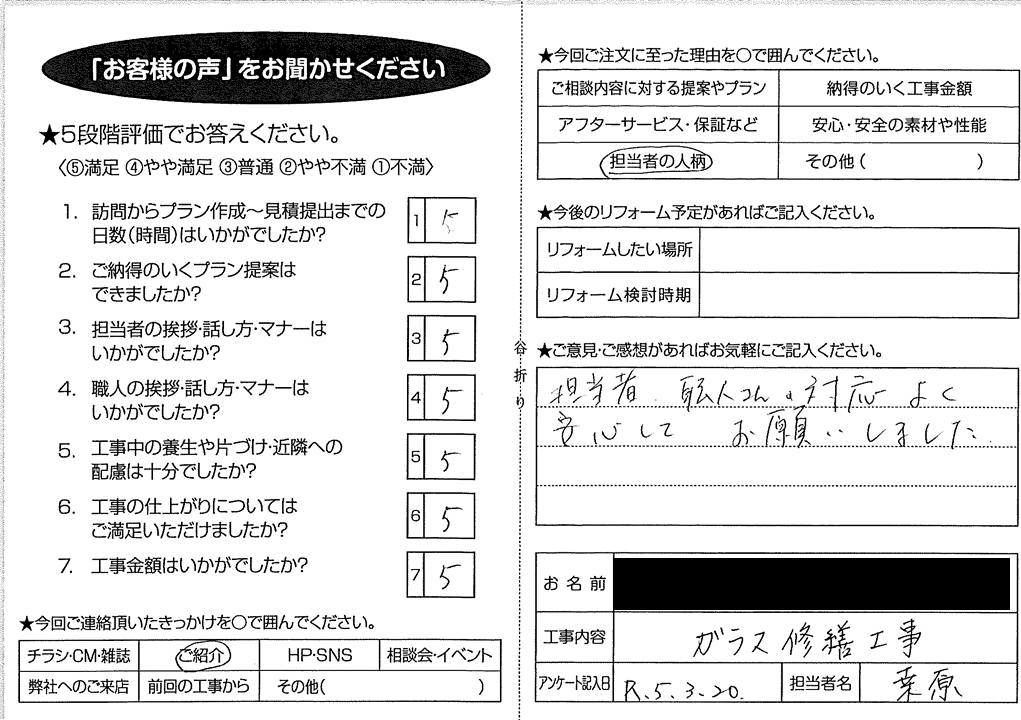 「お客様の声」をお聞かせください
★5段階評価でお答えください。
〈⑤満足 ④やや満足 ③普通 ②やや不満 ①不満〉
1. 訪問からプラン作成～見積提出までの
日数(時間)はいかがでしたか?
1 5
2. ご納得のいくプラン提案は
できましたか?
2 5
3. 担当者の挨拶・話し方・マナーは
いかがでしたか?
3 5
4. 職人の挨拶・話し方・マナーは
いかがでしたか?
4 5
5. 工事中の養生や片づけ・近隣への
配慮は十分でしたか?
5 5
6. 工事の仕上がりについては
ご満足いただけましたか?
6 5
7. 工事金額はいかがでしたか?
7 5
★今回ご連絡頂いたきっかけを○で囲んでください。
チラシ・CM・雑誌 ご紹介 HP・SNS 相談会・イベント
弊社へのご来店 前回の工事から その他( )
谷折り
★今回ご注文に至った理由を○で囲んでください。
ご相談内容に対する提案やプラン 納得のいく工事金額
アフターサービス・保証など 安心・安全の素材や性能
担当者の人柄 その他( )
★今後のリフォーム予定があればご記入ください。
リフォームしたい場所
リフォーム検討時期
★ご意見・ご感想があればお気軽にご記入ください。
担当者、職人さんの対応よく
安心して お願いしました
お名前
工事内容 ガラス修繕工事
アンケート記入日 R.5.3.20. 担当者名 原